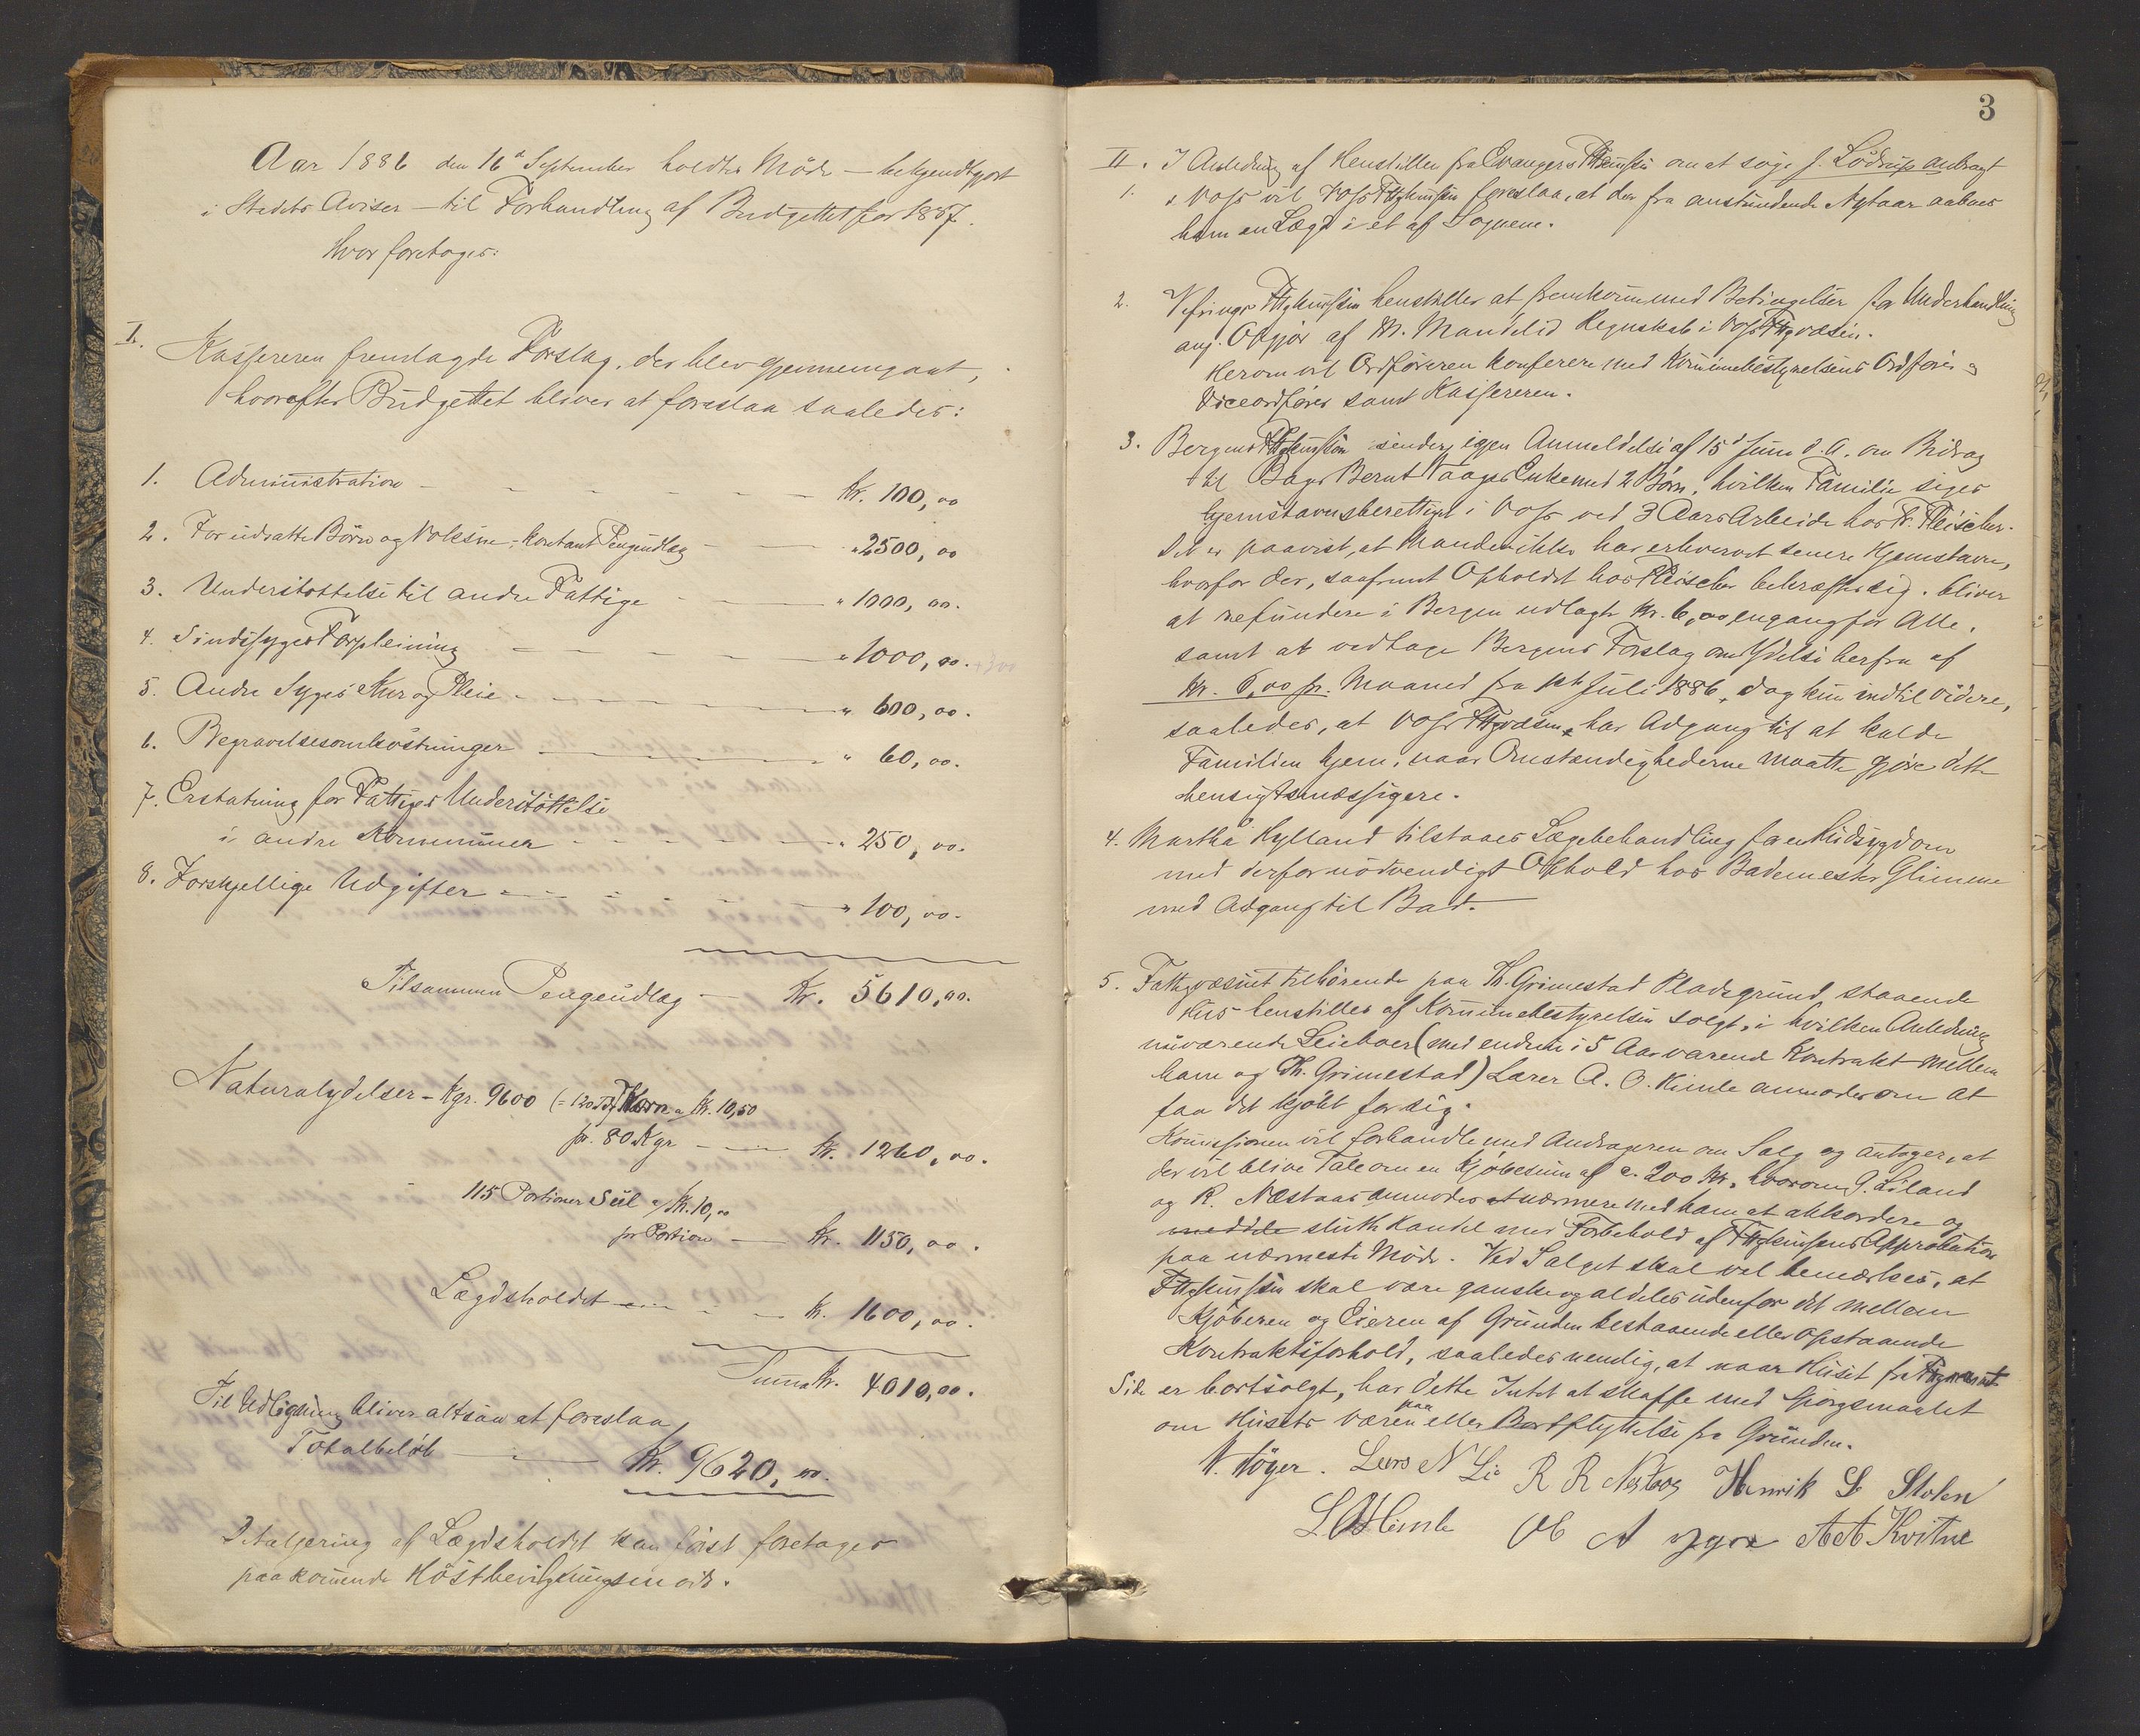 Aar 1886 den 16d September holdtes Møde – bekjendtgjort
i Stedets Aviser – til Forhandling af Budgettet for 1887.
Hvor foretoges:
I. Kassereren fremlagde Forslag, der blev gjennemgaat,
hvorefter Budgettet bliver at foreslaa saaledes:
1. Administration – Kr. 100,00
2. For udsatte Børn og Voksne – kontant Pengeudlæg – " 2500,00
3. Understøttelse til andre Fattige – " 1000,00.
4. Sindssyges Forpleining – " 1000,00.
5. Andre Syges Kur og Pleie – " 600,00.
6. Begravelsesomkostninger – " 60,00.
7. Erstatning for Fattiges Understøttelse
i andre Kommuner – " 250,00.
8. Forskjellige Udgifter – " 100,00.
Tilsammen Pengeudlæg – Kr. 5610,00.
Naturalydelser – Kgr. 9600 (= 120 Korn a Kr. 10,50
pr. 80 Kgr – Kr. 1260,00.
115 Portioner Sul a Kr. 10,00
pr Portion – Kr. 1150,00.
Lægdsholdet – Kr. 1600,00.
Summa Kr. 4010,00.
Til Udligning bliver altsaa at foreslaa
Totalbeløb – Kr. 9620,00.
Detaljering af Lægdsholdet kan først foretages
paa kommende Høstbevilgningsmøde.
3
II. I Anledning af Henstillen fra Evangers Ftgkmssin om at søge J. Lødrup anbragt
1. Voss vil Voss Ftgkmssin foreslaa, at der fra anstundende Nytaar aabnes
ham en Lægd i et af Sognene.
2. Ftgkmssin henstiller at fremkomme med Betingelser for Underhandling
ang. Opgjør af M. Mandelid Regnskab i Voss Ftgvæsen.
Herom vil Ordføreren konferere med Kommunebestyrelsens Ordfører og
Viceordfører samt Kassereren.
3. Bergens Ftgkmssin sender igjen Anmeldelse af 15d Juni d. A. om Bidrag
til Bager Bernt Vaages Enke med 2 Børn, hvilken Familie siges
hjemstavnsberettiget i Voss ved 3 Aars Arbeide hos Fr. Fleischer.
Det er paavist, at Manden ikke har erhvervet senere Hjemstavn,
hvorfor der, saafremt Opholdet hos Fleischer bekræfter sig, bliver
at refundere i Bergen udlagte Kr. 6,00 engang for Alle,
samt at vedtage Bergens Forslag om Ydelse herfra af
Kr. 6,00 pr. Maaned fra 1ste Juli 1886, dog kun indtil videre,
saaledes, at Voss Ftgvæsen har Adgang til at kalde
Familien hjem, naar Omstændighederne maatte gjøre dette
hensigtsmæssigere.
4. Martha Hylland tilstaaes Lægebehandling for en Hudsygdom
med derfor nødvendigt Ophold hos Bademester Glimme
med Adgang til Bad.
5. Fattigvæsnet tilhørende paa Th. Grimestad Pladsgrund staaende
Hus henstilles af Kommunebestyrelsen solgt, i hvilken Anledning
nuværende Leieboer (med endnu i 5 Aar varende Kontrakt mellem
ham og Th. Grimestad) Lærer A. O. Himle anmoder om at
faa det kjøbt for sig.
Komissionen vil forhandle med Andrageren om Salg og antager, at
der vil blive Tale om en Kjøbesum af c. 200 Kr., hvorom G. Liland
og R. Næstaas anmodes at nærmere med ham at akkordere og
meddele slutte Handel med Forbehold af Ftgkmssins Approbation
paa nærmeste Møde. Ved Salget skal vel bemærkes, at
Ftgkmssin skal være ganske og aldeles udenfor det mellem
Kjøberen og Eieren af Grunden bestaaende eller opstaaende
Kontraktsforhold, saaledes nemlig, at naar Huset fra Ftgvæsnets
Side er bortsolgt, har dette Intet at skaffe med Spørgsmaalet
om Husets Væren paa eller Bortflyttelse fra Grunden.
N. Høyer. Lars N Lie R R Nestaas Henrik L Stolen
L O Himle Ob A ygre A A Kvitne